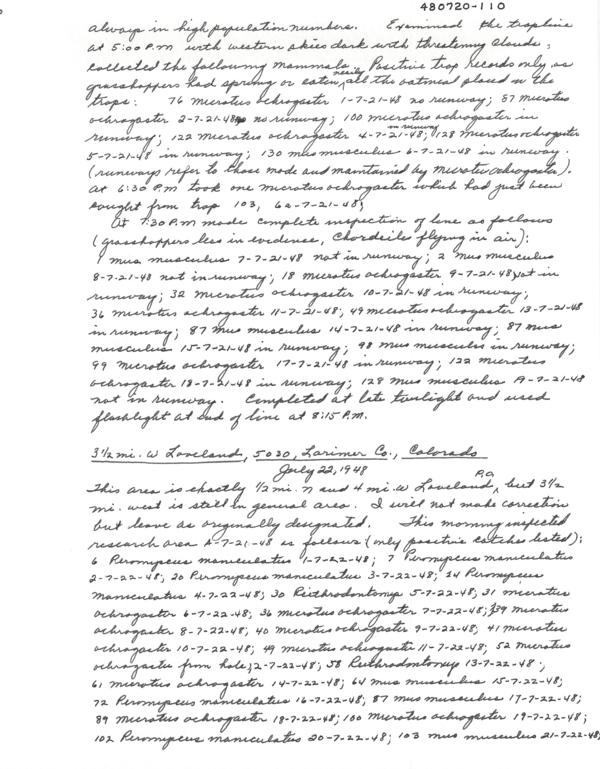 480720-110
always in high population numbers. Examined the trapline
at 5:00 P.M with western skies dark with threatening clouds,
collected the following mammals. Positive trap records only as
grasshoppers had sprung or eaten nearly all the oatmeal placed in the
traps: 76 Microtus ochrogaster 1-7-21-48 no runway; 87 Microtus
ochrogaster 2-7-21-48 no runway; 100 microtus ochrogaster in
runway; 122 Microtus ochrogaster 4-7-21-48 in runway; 128 Microtus ochrogaster
5-7-21-48 in runway; 130 mus musculus 6-7-21-48 in runway.
(runways refer to those made and maintained by Microtus ochrogaster).
At 6:30 P.M took one microtus ochrogaster which had just been
caught from trap 103, 6a-7-21-48;
At 7:30 P.M. made complete inspection of line as follows
(grasshoppers less in evidence, Chordeiles flying in air):
1 mus musculus 7-7-21-48 not in runway; 2 Mus musculus
8-7-21-48 not in runway; 18 Microtus ochrogaster 9-7-21-48 not in
runway; 32 Microtus ochrogaster 10-7-21-48 in runway;
36 Microtus ochrogaster 11-7-21-48; 49 Microtus ochrogaster 13-7-21-48
in runway; 87 Mus musculus 14-7-21-48 in runway; 87 mus
musculus 15-7-21-48 in runway; 98 mus musculus in runway;
99 Microtus ochrogaster 17-7-21-48 in runway; 122 microtus
ochrogaster 18-7-21-48 in runway; 128 Mus musculus 19-7-21-48
not in runway. Completed at late twilight and used
flashlight at end of line at 8:15 P.M.
3 1/2 mi. W Loveland, 5030, Larimer Co., Colorado
July 22, 1948
This area is exactly 1/2 mi. N and 4 mi. W Loveland, P.O. but 3 1/2
mi. west is still in general area. I will not make correction
but leave as originally designated. This morning inspected
research area A-7-21-48 as follows (only positive catches listed):
6 Peromyscus maniculatus 1-7-22-48; 7 Peromyscus maniculatus
2-7-22-48; 20 Peromyscus maniculatus 3-7-22-48; 24 Peromyscus
maniculatus 4-7-22-48; 30 Reithrodontomys 5-7-22-48; 31 microtus
ochrogaster 6-7-22-48; 36 microtus ochrogaster 7-7-22-48; 39 Microtus
ochrogaster 8-7-22-48; 40 Microtus ochrogaster 9-7-22-48; 41 microtus
ochrogaster 10-7-22-48; 49 microtus ochrogaster 11-7-22-48; 52 Microtus
ochrogaster from hole 12-7-22-48; 58 Reithrodontomys 13-7-22-48;
61 microtus ochrogaster 14-7-22-48; 64 mus musculus 15-7-22-48;
72 Peromyscus maniculatus 16-7-22-48; 87 mus musculus 17-7-22-48;
89 Microtus ochrogaster 18-7-22-48; 100 Microtus ochrogaster 19-7-22-48;
102 Peromyscus maniculatus 20-7-22-48; 103 mus musculus 21-7-22-48;